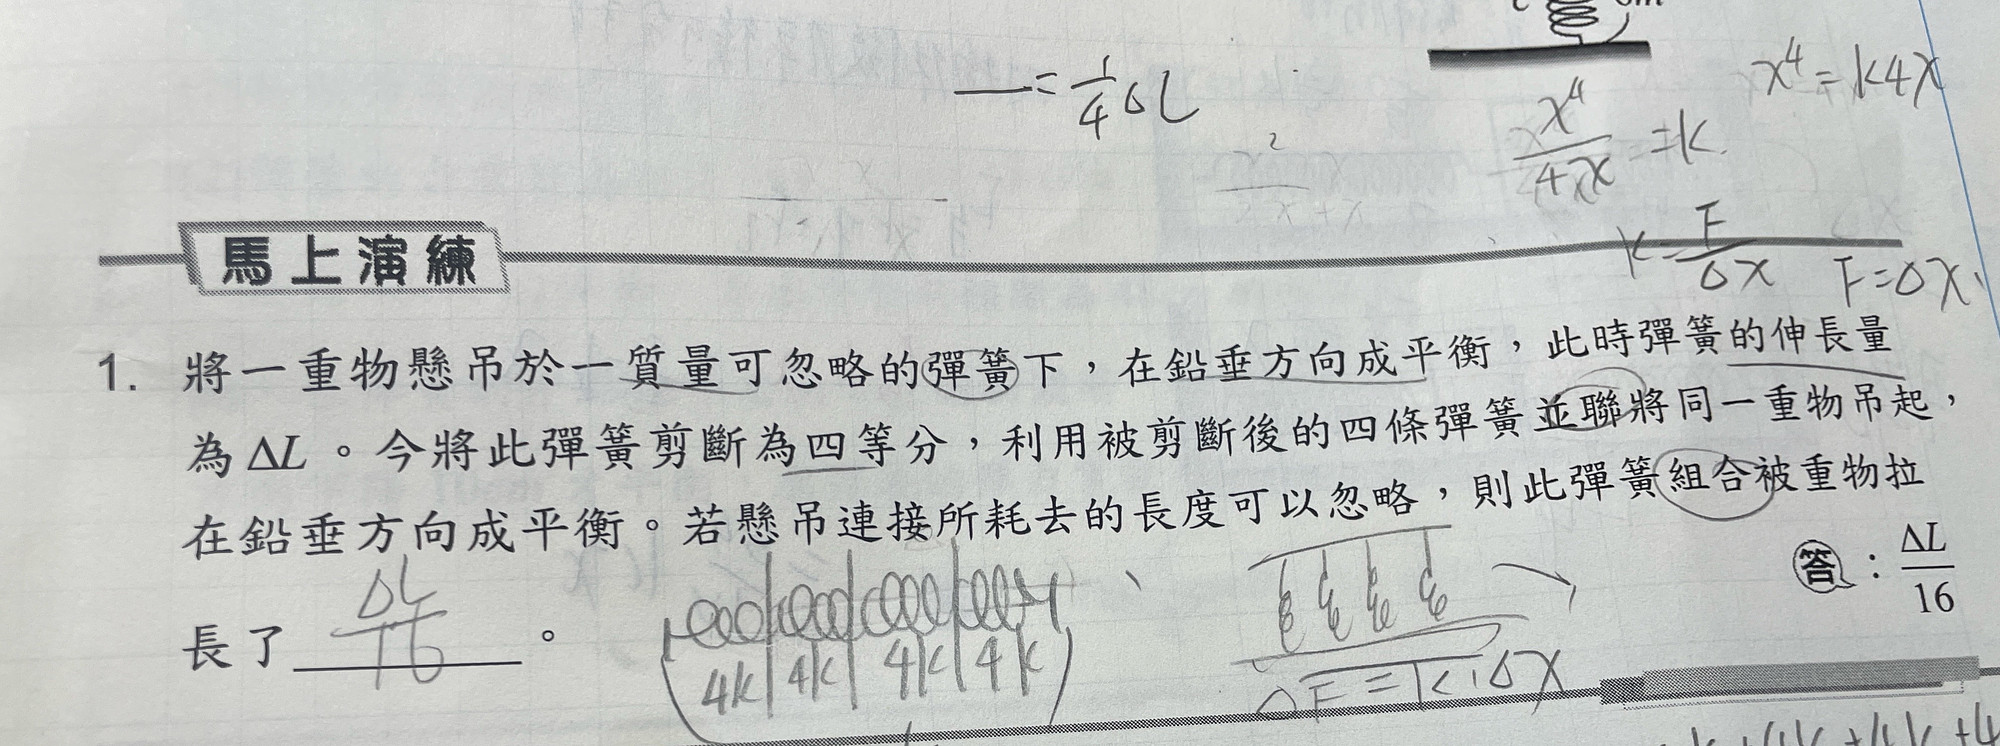 cm
— = 1/4 ΔL
x⁴ = k4x
x⁴/4x = k
馬上演練
k = F/Δx
F = Δx
1. 將一重物懸吊於一質量可忽略的彈簧下，在鉛垂方向成平衡，此時彈簧的伸長量
為 ΔL。今將此彈簧剪斷為四等分，利用被剪斷後的四條彈簧並聯將同一重物吊起，
在鉛垂方向成平衡。若懸吊連接所耗去的長度可以忽略，則此彈簧組合被重物拉
長了 ΔL/16 。
答：ΔL/16
4k 4k 4k 4k
ΔF = k·Δx